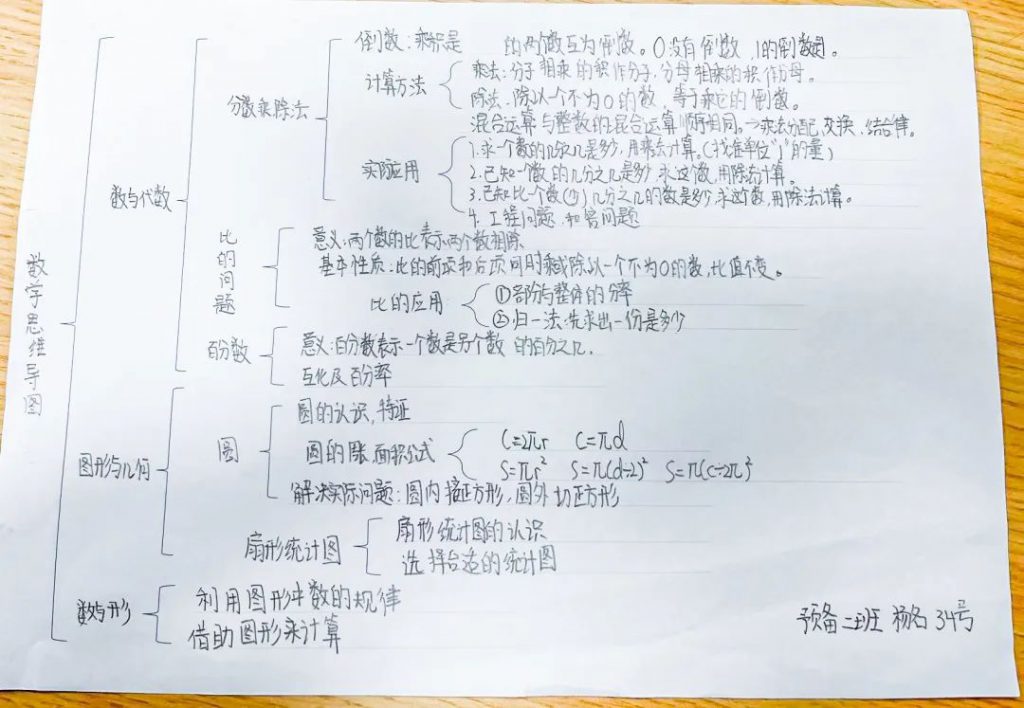 数学思维导图
数与代数
分数乘除法
倒数:乘积是 的两个数互为倒数。0没有倒数,1的倒数是。
计算方法
乘法:分子相乘的积作分子,分母相乘的积作分母。
除法:除以一个不为0的数,等于乘它的倒数。
混合运算与整数的混合运算顺序相同。→乘法分配、交换、结合律。
实际应用
1.求一个数的几分之几是多少,用乘法计算。(找准单位"1"的量)
2.已知一个数的几分之几是多少,求这个数,用除法计算。
3.已知比一个数(少)几分之几的数是多少,求这个数,用除法计算。
4.工程问题、和容问题
比的问题
意义:两个数的比表示两个数相除
基本性质:比的前项和后项同时乘或除以一个不为0的数,比值不变。
比的应用
①部分与整体的分率
②归一法:先求出一份是多少
百分数
意义:百分数表示一个数是另个数 的百分之几.
互化及百分率
图形与几何
圆
圆的认识,特征
圆的 面积公式
C=2πr C=πd
S=πr² S=π(d÷2)² S=π(C÷2π)²
解决实际问题:圆内接正方形,圆外切正方形
扇形统计图
扇形统计图的认识
选择合适的统计图
数与形
利用图形中数的规律
借助图形来计算
预备二班 杨名 34号